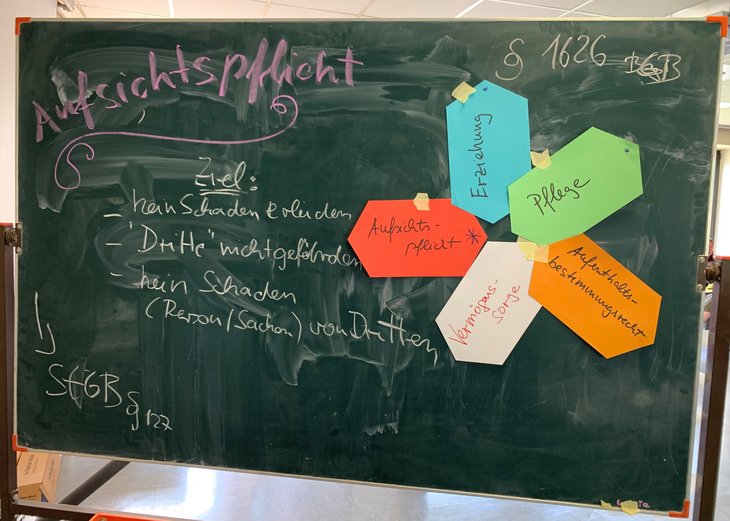 Aufsichtspflicht
§ 1626 BGB
Ziel:
– kein Schaden erleiden
– "Dritte" nicht gefährden
– kein Schaden
(Person/Sachen) von Dritten
StGB § 127
Erziehung
Pflege
Aufsichts-
pflicht *
Vermögens-
sorge
Aufenthalts-
bestimmungsrecht